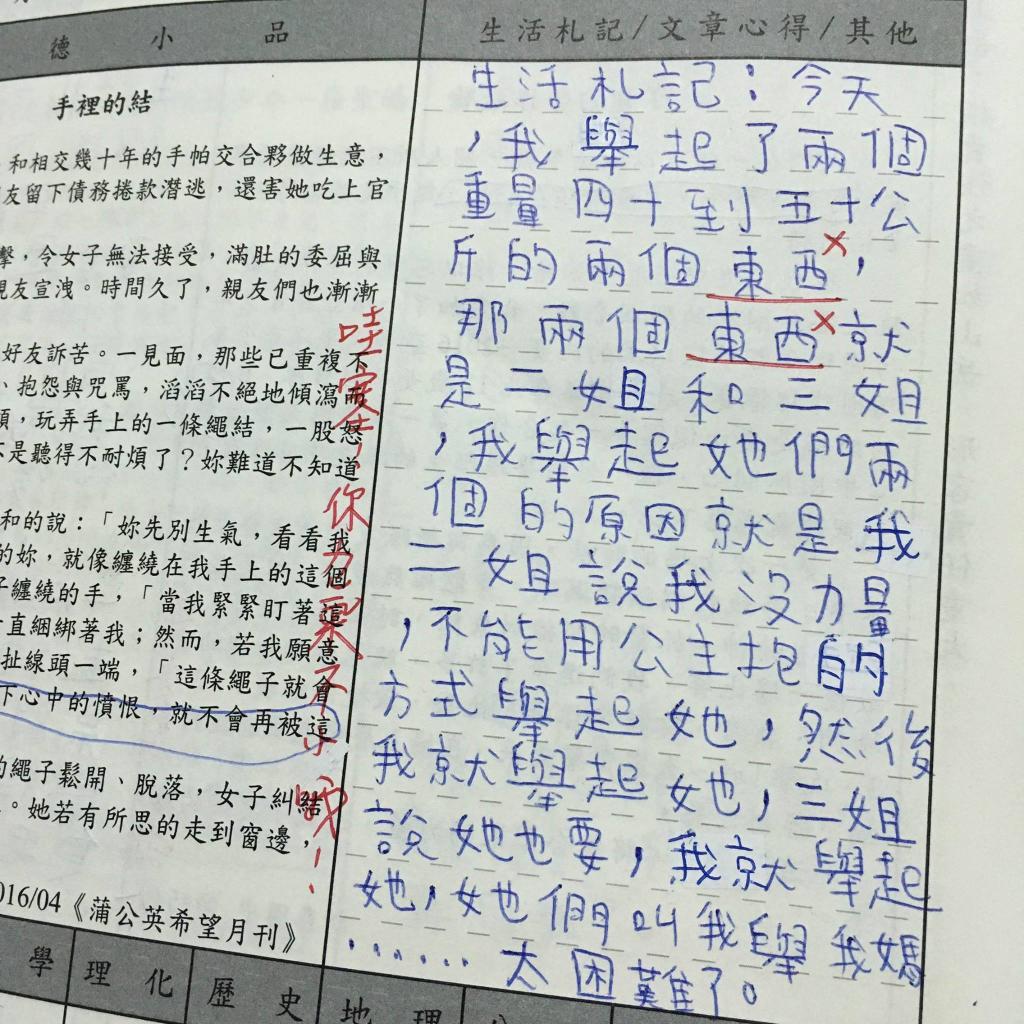 德小品
生活札記/文章心得/其他
手裡的結
和相交幾十年的手帕交合夥做生意，
友留下債務捲款潛逃，還害她吃上官
擊，令女子無法接受，滿肚的委屈與
親友宣洩。時間久了，親友們也漸漸
好友訴苦。一見面，那些已重複不
、抱怨與咒罵，滔滔不絕地傾瀉而
頭，玩弄手上的一條繩結，一股怒
不是聽得不耐煩了？妳難道不知道
和的說：「妳先別生氣，看看我
的妳，就像纏繞在我手上的這個
子纏繞的手，「當我緊緊盯著這
直綑綁著我；然而，若我願意
扯線頭一端，「這條繩子就會
下心中的憤恨，就不會再被這
的繩子鬆開、脫落，女子糾結
。她若有所思的走到窗邊，
016/04《蒲公英希望月刊》
學 理化 歷史 地理
生活札記：今天
，我舉起了兩個
重量四十到五十公
斤的兩個東西，
那兩個東西就
是二姐和三姐
，我舉起她們兩
個的原因就是我
二姐說我沒力量
，不能用公主抱的
方式舉起她，然後
我就舉起她，三姐
說她也要，我就舉起
她，她們叫我舉我媽
……太困難了。
哇塞！你力氣不小哦！